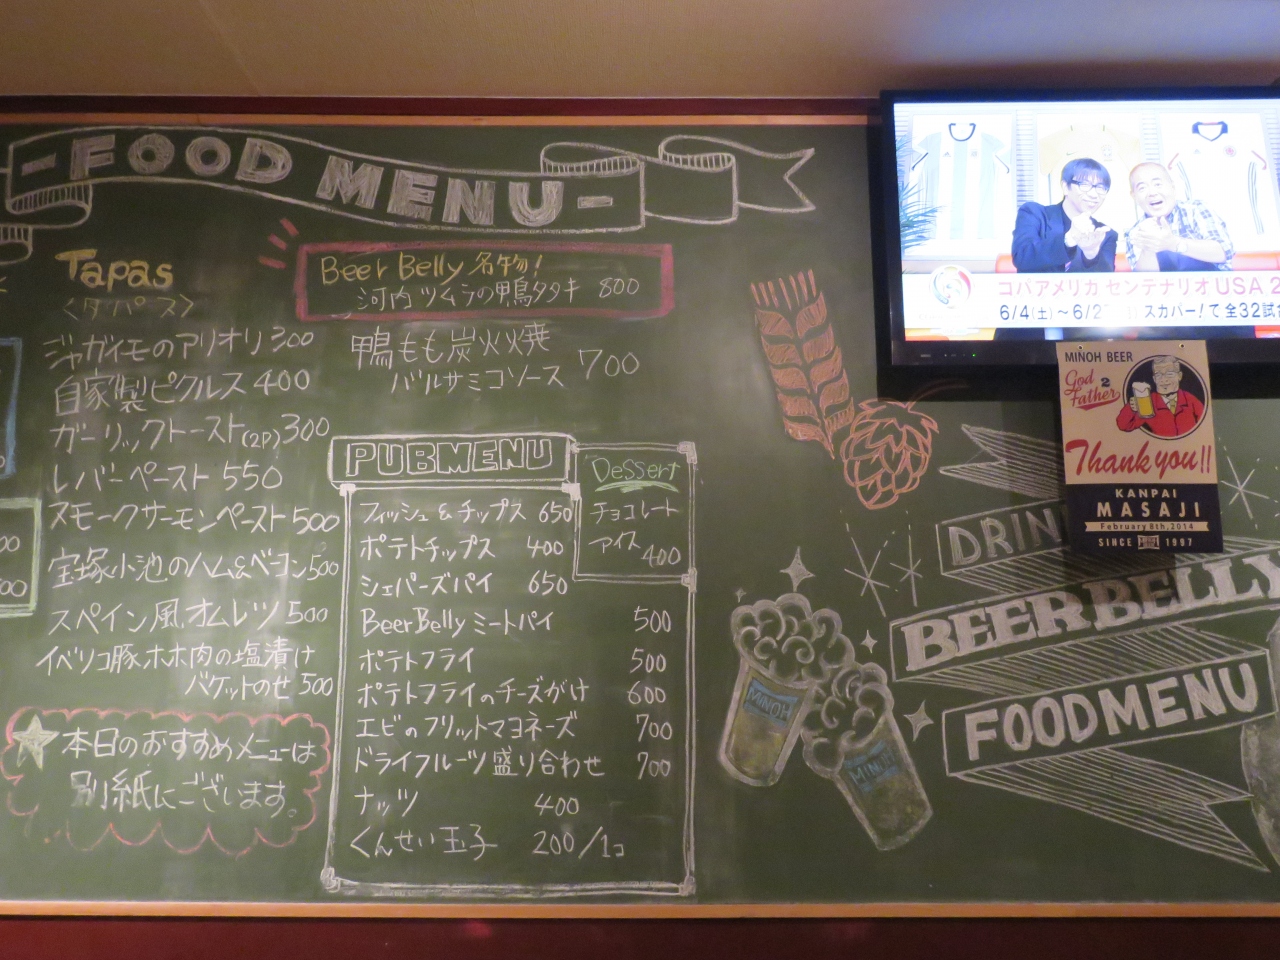 - FOOD MENU -
Tapas
<タパース>
ジャガイモのアリオリ 300
自家製ピクルス 400
ガーリックトースト(2P) 300
レバーペースト 550
スモークサーモンペースト 500
宝塚小池のハム&ベーコン 500
スペイン風オムレツ 500
イベリコ豚ホホ肉の塩漬け
バケットのせ 500
本日のおすすめメニューは
別紙にございます。
Beer Belly 名物!
河内ツムラの鴨タタキ 800
鴨もも炭火焼
バルサミコソース 700
PUBMENU
フィッシュ&チップス 650
ポテトチップス 400
シェパーズパイ 650
BeerBelly ミートパイ 500
ポテトフライ 500
ポテトフライのチーズがけ 600
エビのフリットマヨネーズ 700
ドライフルーツ盛り合わせ 700
ナッツ 400
くんせい玉子 200/1コ
Dessert
チョコレート
アイス 400
00
00
MINOH
MINOH
DRIN
BEER BELLY
FOODMENU
コパアメリカ センテナリオ USA 2
6/4(土)～6/2
スカパー!で全32試合
MINOH BEER
God
2
Father
Thank you!!
KANPAI
MASAJI
February 8th, 2014
SINCE 1997